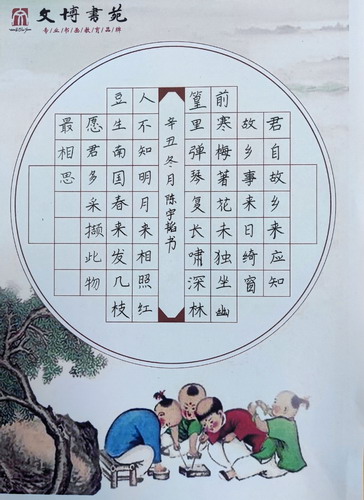 文博书苑
专/业/书/画/教/育/品/牌
君自故乡来应知
故乡事来日绮窗
前寒梅著花未独坐幽
篁里弹琴复长啸深林
辛丑冬月陈宇书
人不知明月来相照红
豆生南国春来发几枝
愿君多采撷此物
最相思